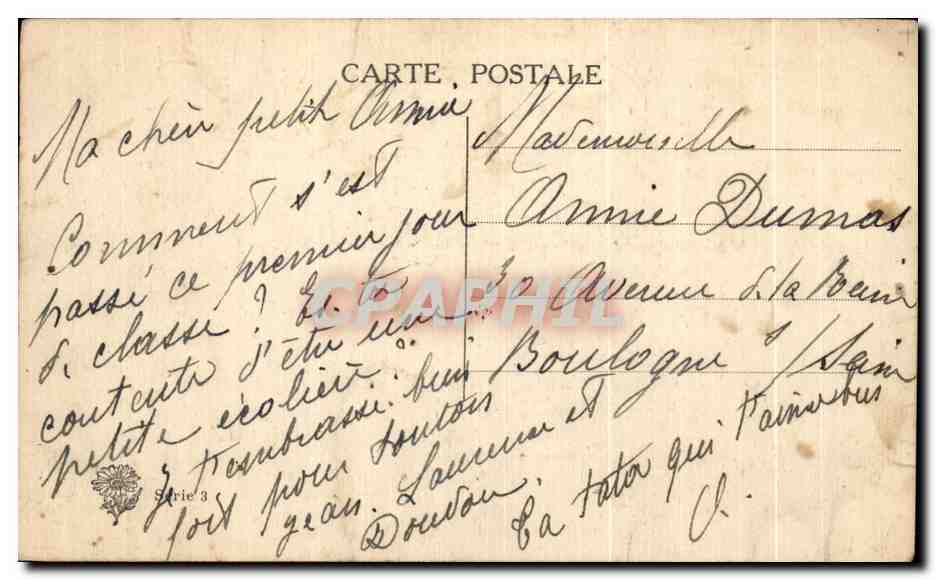 CARTE POSTALE
Ma chère petite Annie
Comment s'est
passé ce premier jour
de classe? Es tu
contente d'être une
petite écolière?
Je t'embrasse bien
fort pour toutous
Jean. Laurence et
Doudou.
Ta tator qui t'aime bien
O.
Mademoiselle
Annie Dumas
30 Avenue d. la Reine
Boulogne s/Seine
CPARHIL
Série 3